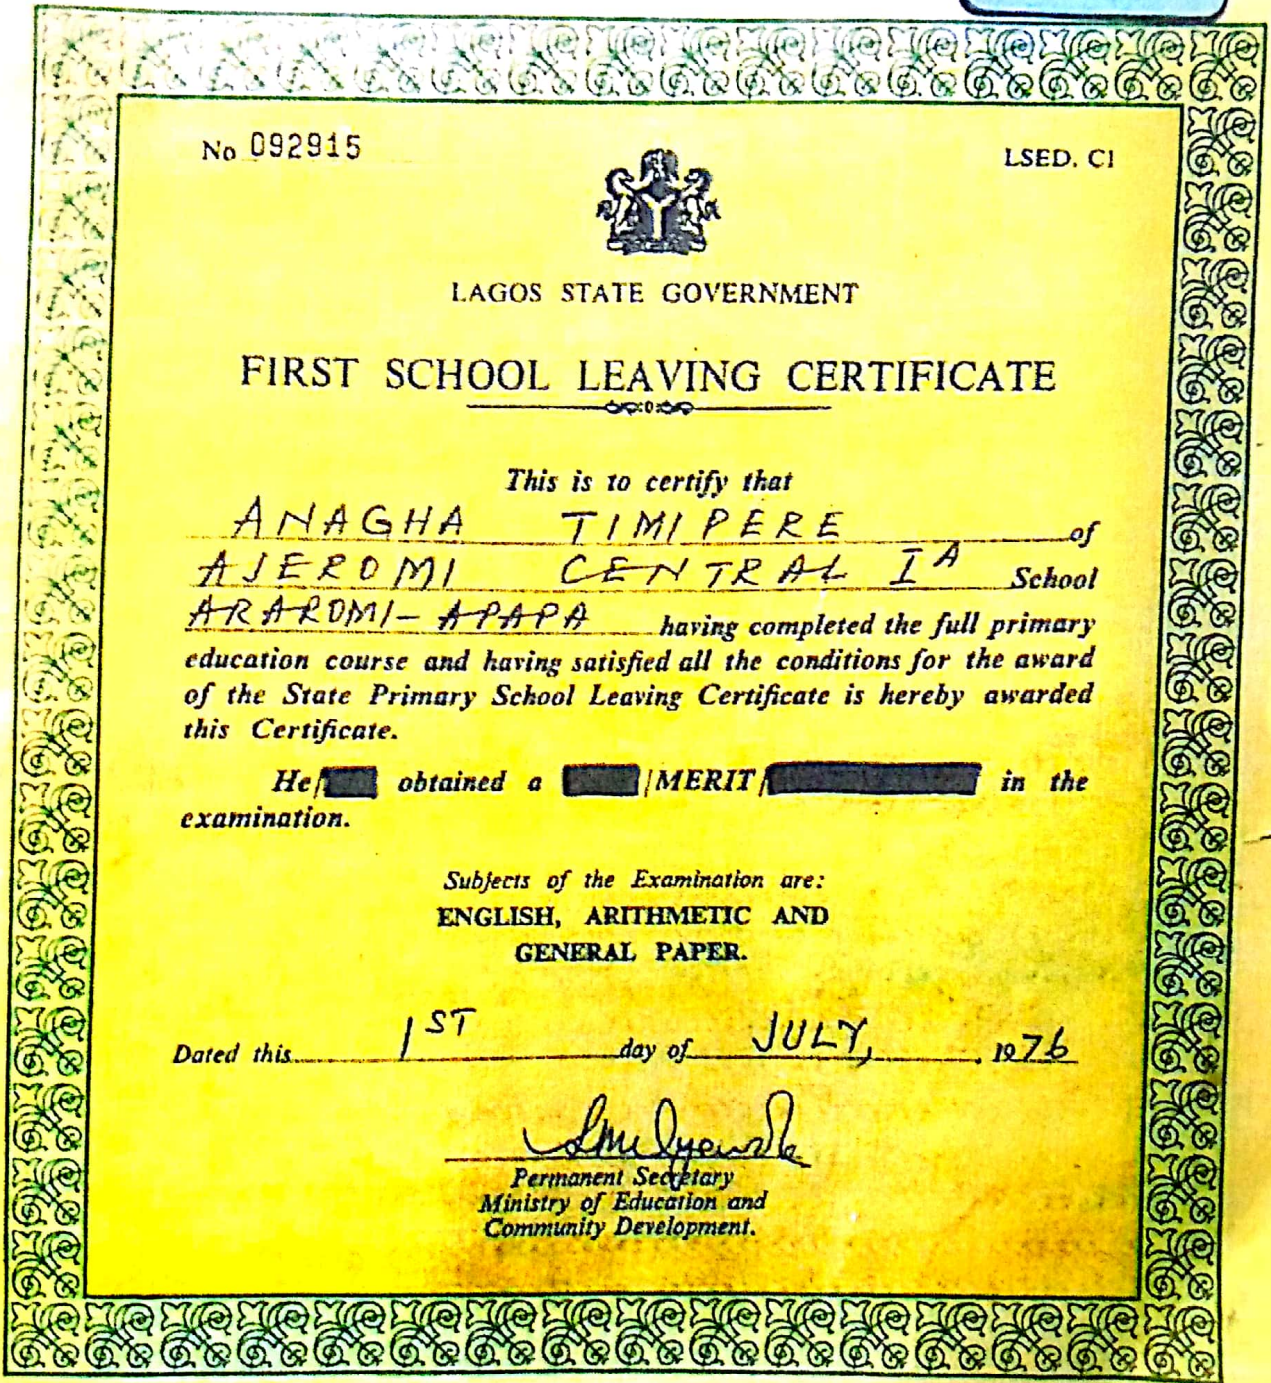 No 092915
LSED. C1
LAGOS STATE GOVERNMENT
FIRST SCHOOL LEAVING CERTIFICATE
This is to certify that
ANAGHA TIMIPERE of
AJEROMI CENTRAL I A School
ARAROMI-APAPA having completed the full primary
education course and having satisfied all the conditions for the award
of the State Primary School Leaving Certificate is hereby awarded
this Certificate.
He/ obtained a /MERIT/ in the
examination.
Subjects of the Examination are:
ENGLISH, ARITHMETIC AND
GENERAL PAPER.
Dated this 1ST day of JULY, 1976
Permanent Secretary
Ministry of Education and
Community Development.